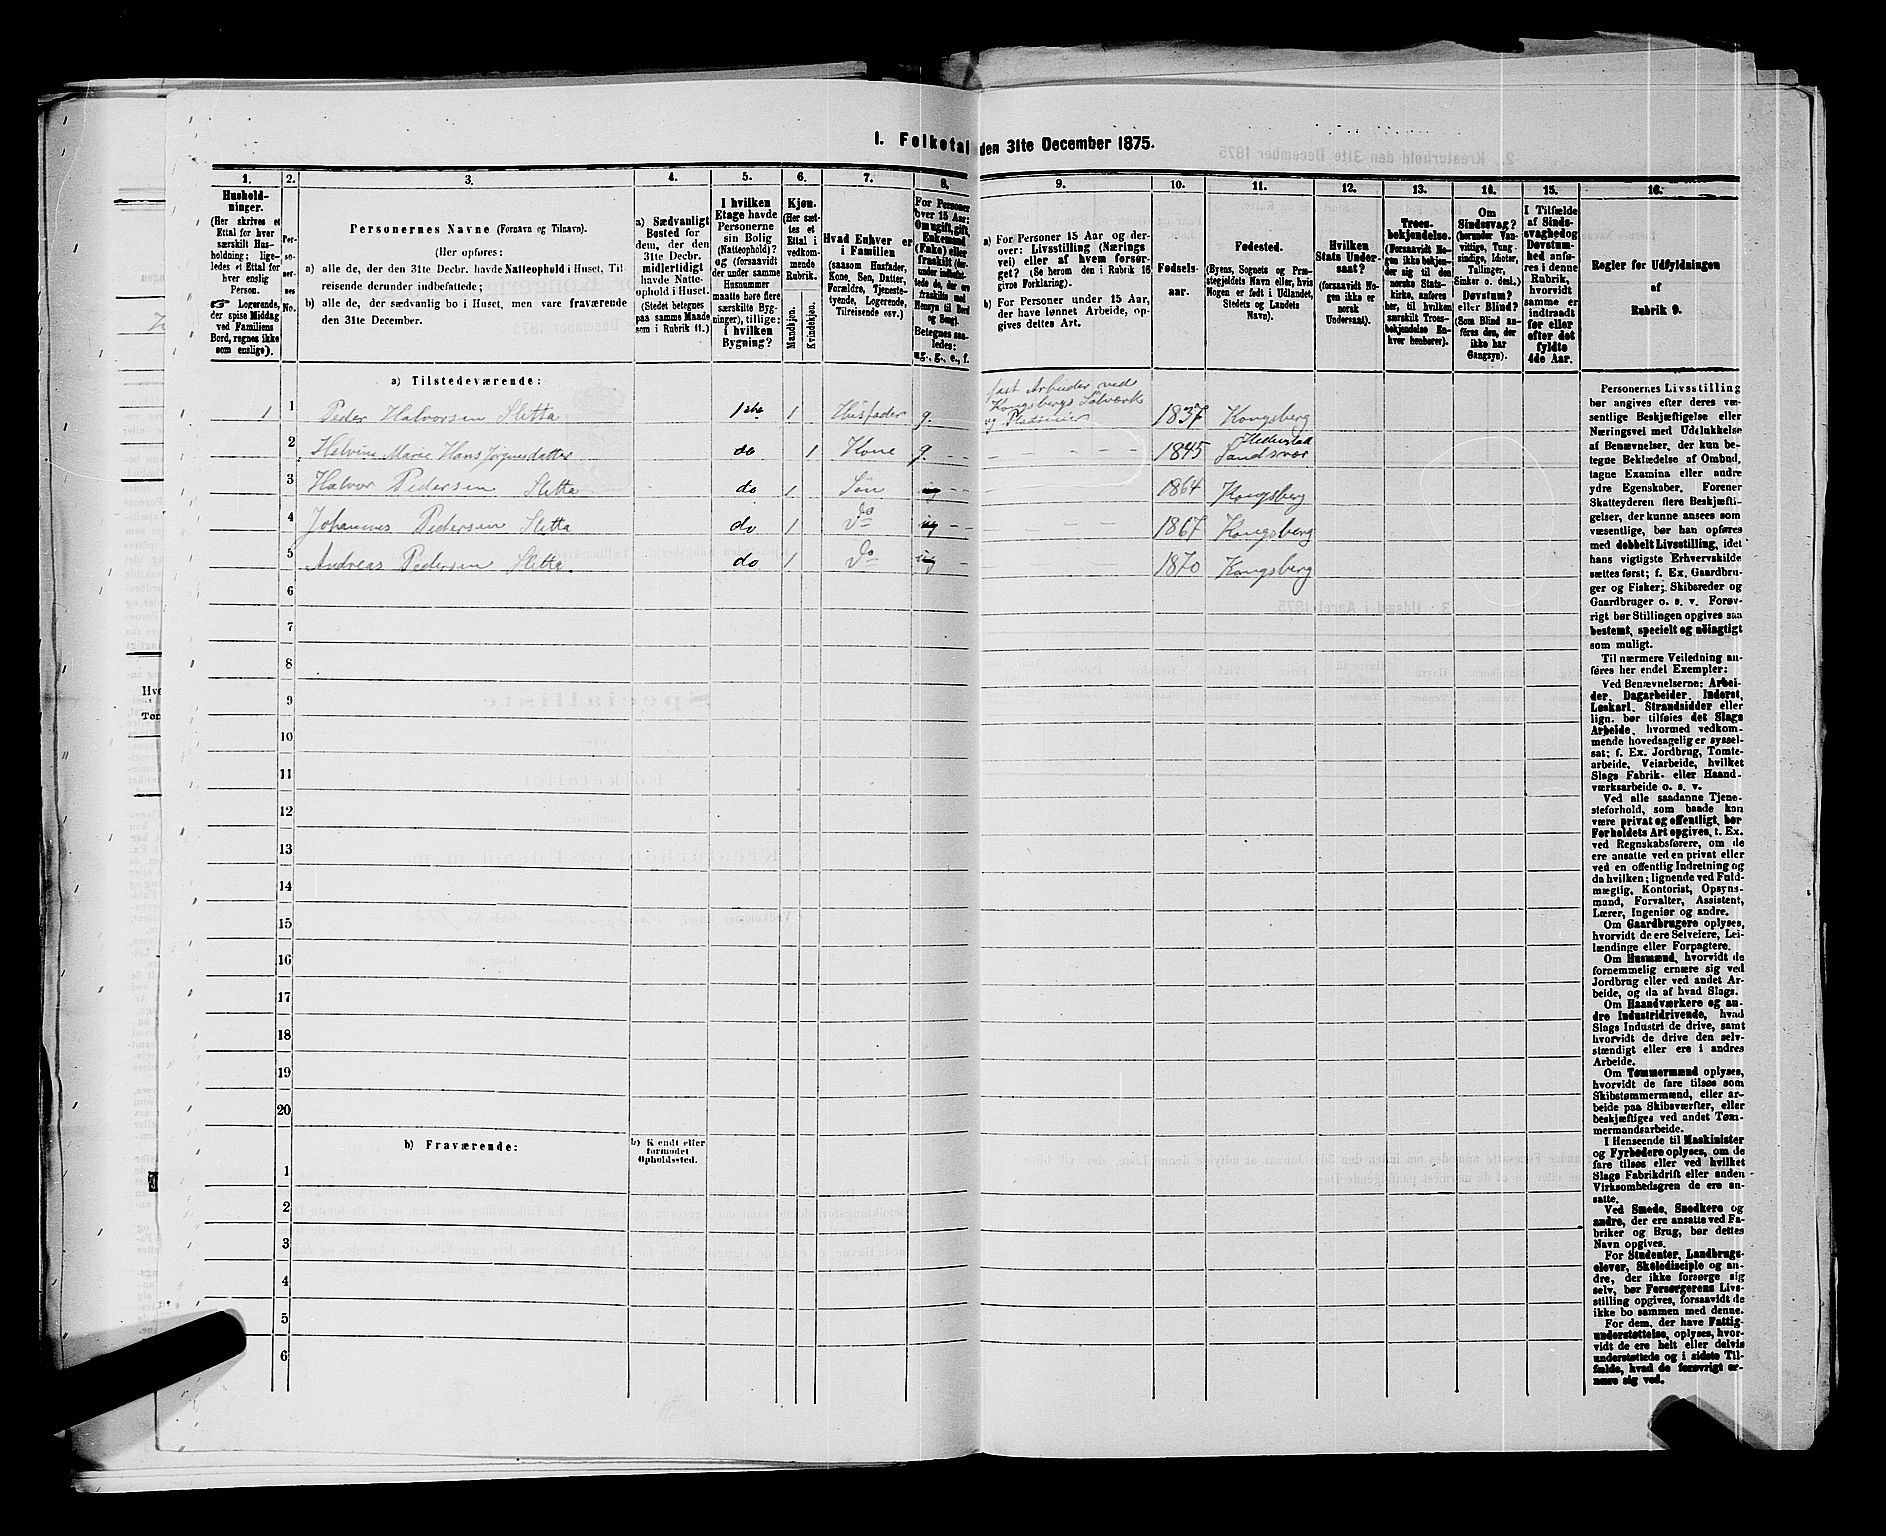 1. Folketal den 31te December 1875.
1.
Hushold-
ninger.
(Her skrives et
Ettal for hver
særskilt Hus-
holdning; lige-
ledes et Ettal for
hver enslig
Person.
☞ Logerende,
der spise Middag
ved Familiens
Bord, regnes ikke
som enslige).
2.
Per-
so-
ner-
nes
No.
3.
Personernes Navne (Fornavn og Tilnavn).
(Her opføres:
a) alle de, der den 31te Decbr. havde Natteophold i Huset, Til-
reisende derunder indbefattede;
b) alle de, der sædvanlig bo i Huset, men vare fraværende
den 31te December.
4.
a) Sædvanligt
Bosted for
dem, der den
31te Decbr.
midlertidigt
havde Natte-
ophold i Huset.
(Stedet betegnes
paa samme Maade
som i Rubrik 11.)
5.
I hvilken
Etage havde
Personerne
sin Bolig
(Natteophold)?
og (forsaavidt
der under samme
Husnummer
maatte høre flere
særskilte Byg-
ninger), tillige:
i hvilken
Bygning?
6.
Kjøn.
(Her sæt-
tes et
Ettal i
vedkom-
mende
Rubrik.
Mandkjøn.
Kvindekjøn.
7.
Hvad Enhver er
i Familien
(saasom Husfader,
Kone, Søn, Datter,
Forældre, Tjeneste-
tyende, Logerende,
Tilreisende osv.)
8.
For Personer
over 15 Aar:
Om ugift, gift,
Enkemand
(Enke) eller
fraskilt
Betegnes saa-
ledes:
ug., g., e., f.
9.
a) For Personer 15 Aar og der-
over: Livsstilling (Nærings
vei) eller af hvem forsør-
get? (Se herom den i Rubrik 16
givne Forklaring).
b) For Personer under 15 Aar,
der have lønnet Arbeide, op-
gives dettes Art.
10.
Fødsels-
aar.
11.
Fødested.
(Byens, Sognets og Præ-
stegjeldets Navn eller, hvis
Nogen er født i Udlandet,
Stedets og Landets
Navn).
12.
Hvilken
Stats Under-
saat?
(forsaavidt No-
gen ikke er
norsk
Undersaat).
13.
Troes-
bekjendelse.
(Forsaavidt No-
gen ikke bekjen-
der sig til den
norske Stats-
kirke, anføres
her, til hvilken
særskilt Troes-
bekjendelse En-
hver henhører).
14.
Om
Sindssvag?
(herunder Van-
vittige, Tung-
sindige, Idioter,
Tullinger,
Sinker o. desl.)
Døvstum?
eller Blind?
(Som Blind an-
føres den, der
ikke har
Gangsyn).
15.
I Tilfælde
af Sinds-
svaghed og
Døvstum-
hed anfø-
res i denne
Rubrik,
hvorvidt
samme er
indtraadt
før eller
efter det
fyldte
4de Aar.
16.
Regler for Udfyldningen
af
Rubrik 9.
a) Tilstedeværende:
1 1 Peder Halvorsen Sletta 1 ste 1 Husfader g. fast Arbeider ved
Kongsbergs Sølvværk
og Pladseier 1837 Kongsberg
2 Helvine Marie Hans Jørgensdatter do 1 Kone g. 1845 Hedenstad
Sandsvær
3 Halvor Pedersen Sletta do 1 Søn ug 1864 Kongsberg
4 Johannes Pedersen Sletta do 1 Do ug 1867 Kongsberg
5 Andreas Pedersen Sletta. do 1 Do ug 1870 Kongsberg
6
7
8
9
10
11
12
13
14
15
16
17
18
19
20
b) Fraværende:
b) Kjendt eller
formodet
Opholdssted.
1
2
3
4
5
6
Personernes Livsstilling
bør angives efter deres væ-
sentlige Beskjæftigelse eller
Næringsvei med Udelukkelse
af Benævnelser, der kun be-
tegne Beklædelse af Ombud,
tagne Examina eller andre
ydre Egenskaber. Forener
Skatteyderen flere Beskjæfti-
gelser, der kunne ansees som
væsentlige, bør han opføres
med dobbelt Livsstilling, idet
hans vigtigste Erhvervskilde
sættes først; f. Ex. Gaardbru-
ger og Fisker; Skibsreder og
Gaardbruger o. s. v. Forøv-
rigt bør Stillingen opgives saa
bestemt, specielt og nøiagtigt
som muligt.
Til nærmere Veiledning an-
føres her endel Exempler:
Ved Benævnelserne: Arbei-
der, Dagarbeider, Inderst,
Løskarl, Strandsidder eller
lign. bør tilføies det Slags
Arbeide, hvormed vedkom-
mende hovedsagelig er syssel-
sat; f. Ex. Jordbrug, Tomte-
arbeide, Veiarbeide, hvilket
Slags Fabrik- eller Haand-
værksarbeide o. s. v.
Ved alle saadanne Tjene-
steforhold, som baade kan
være privat og offentligt, bør
Forholdets Art opgives, t. Ex.
ved Regnskabsførere, om de
ere ansatte ved en privat eller
ved en offentlig Indretning og
da hvilken; lignende ved Fuld-
mægtig, Kontorist, Opsyns-
mand, Forvalter, Assistent,
Lærer, Ingeniør og andre.
Om Gaardbrugere oplyses,
hvorvidt de ere Selveiere, Lei-
lændinge eller Forpagtere.
Om Husmænd, hvorvidt de
fornemmelig ernære sig ved
Jordbrug eller ved andet Ar-
beide, og da af hvad Slags.
Om Haandværkere og an-
dre Industridrivende, hvad
Slags Industri de drive, samt
hvorvidt de drive den selv-
stændigt eller ere i andres
Arbeide.
Om Tømmermænd oplyses,
hvorvidt de fare tilsøs som
Skibstømmermænd, eller ar-
beide paa Skibsværfter, eller
beskjæftiges ved andet Tøm-
mermandsarbeide.
I Henseende til Maskinister
og Fyrbødere oplyses, om de
fare tilsøs eller ved hvilket
Slags Fabrikdrift eller anden
Virksomhedsgren de ere an-
satte.
Ved Smede, Snedkere og
andre, der ere ansatte ved Fa-
briker og Brug, bør dettes
Navn opgives.
For Studenter, Landbrugs-
elever, Skoledisciple og an-
dre, der ikke forsørge sig
selv, bør Forsørgerens Livs-
stilling opgives, forsaavidt de
ikke bo sammen med denne.
For dem, der have Fattig-
understøttelse, oplyses, hvor-
vidt de ere helt eller delvis
understøttede og i sidste Til-
fælde, hvad de forøvrigt er-
nære sig ved.